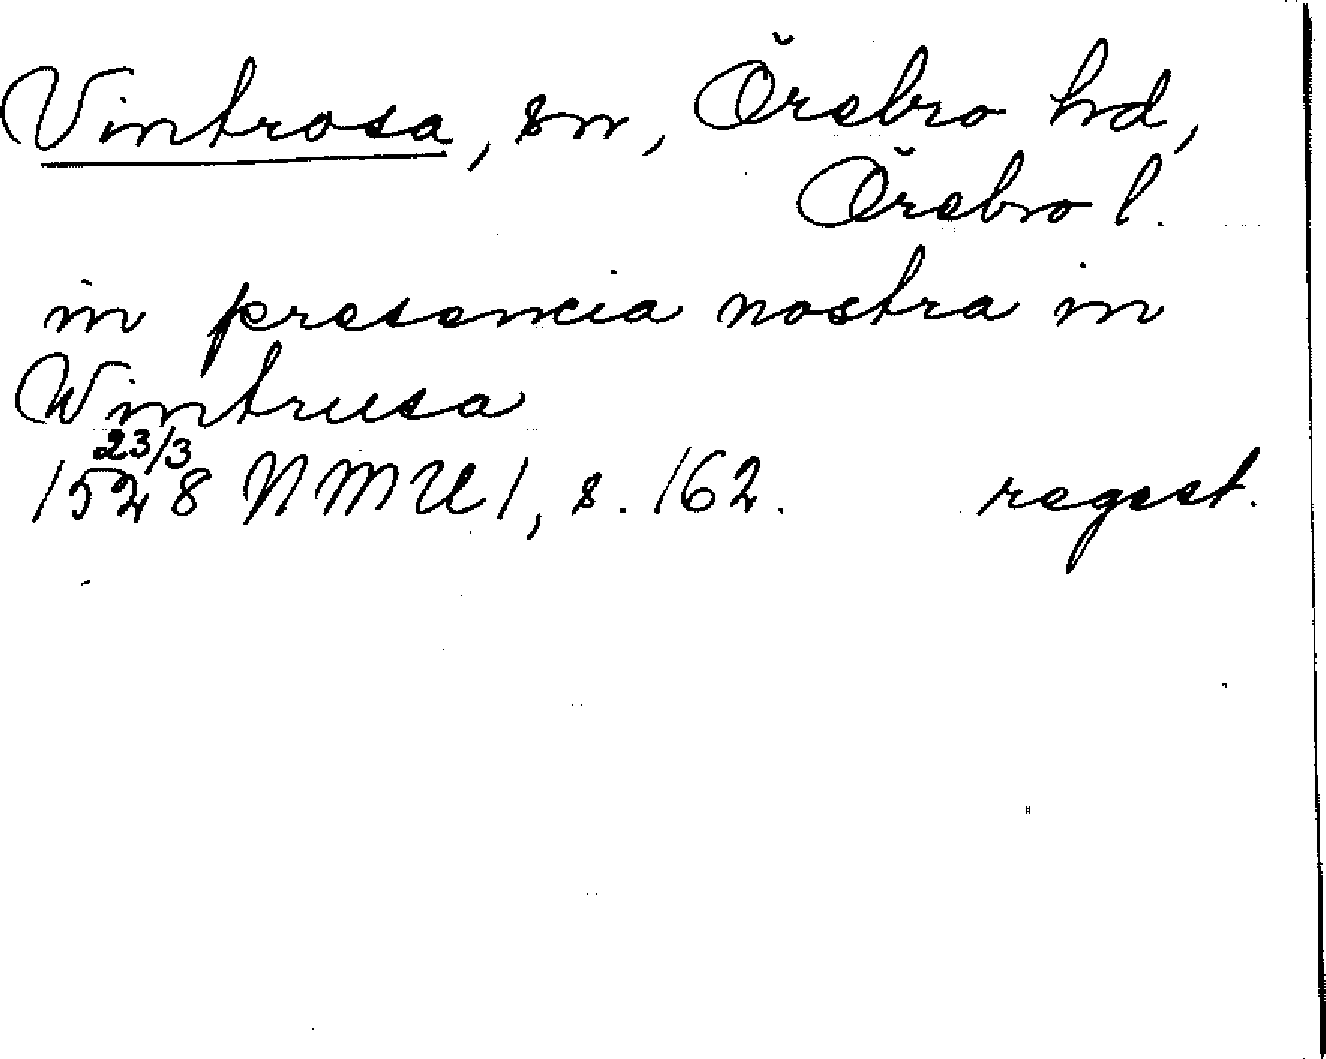 Vintrosa, sn, Örebro hd,
Örebro l.
in presencia nostra in
Wintrusa
23/3
1528 NMU 1, s. 162. regest.